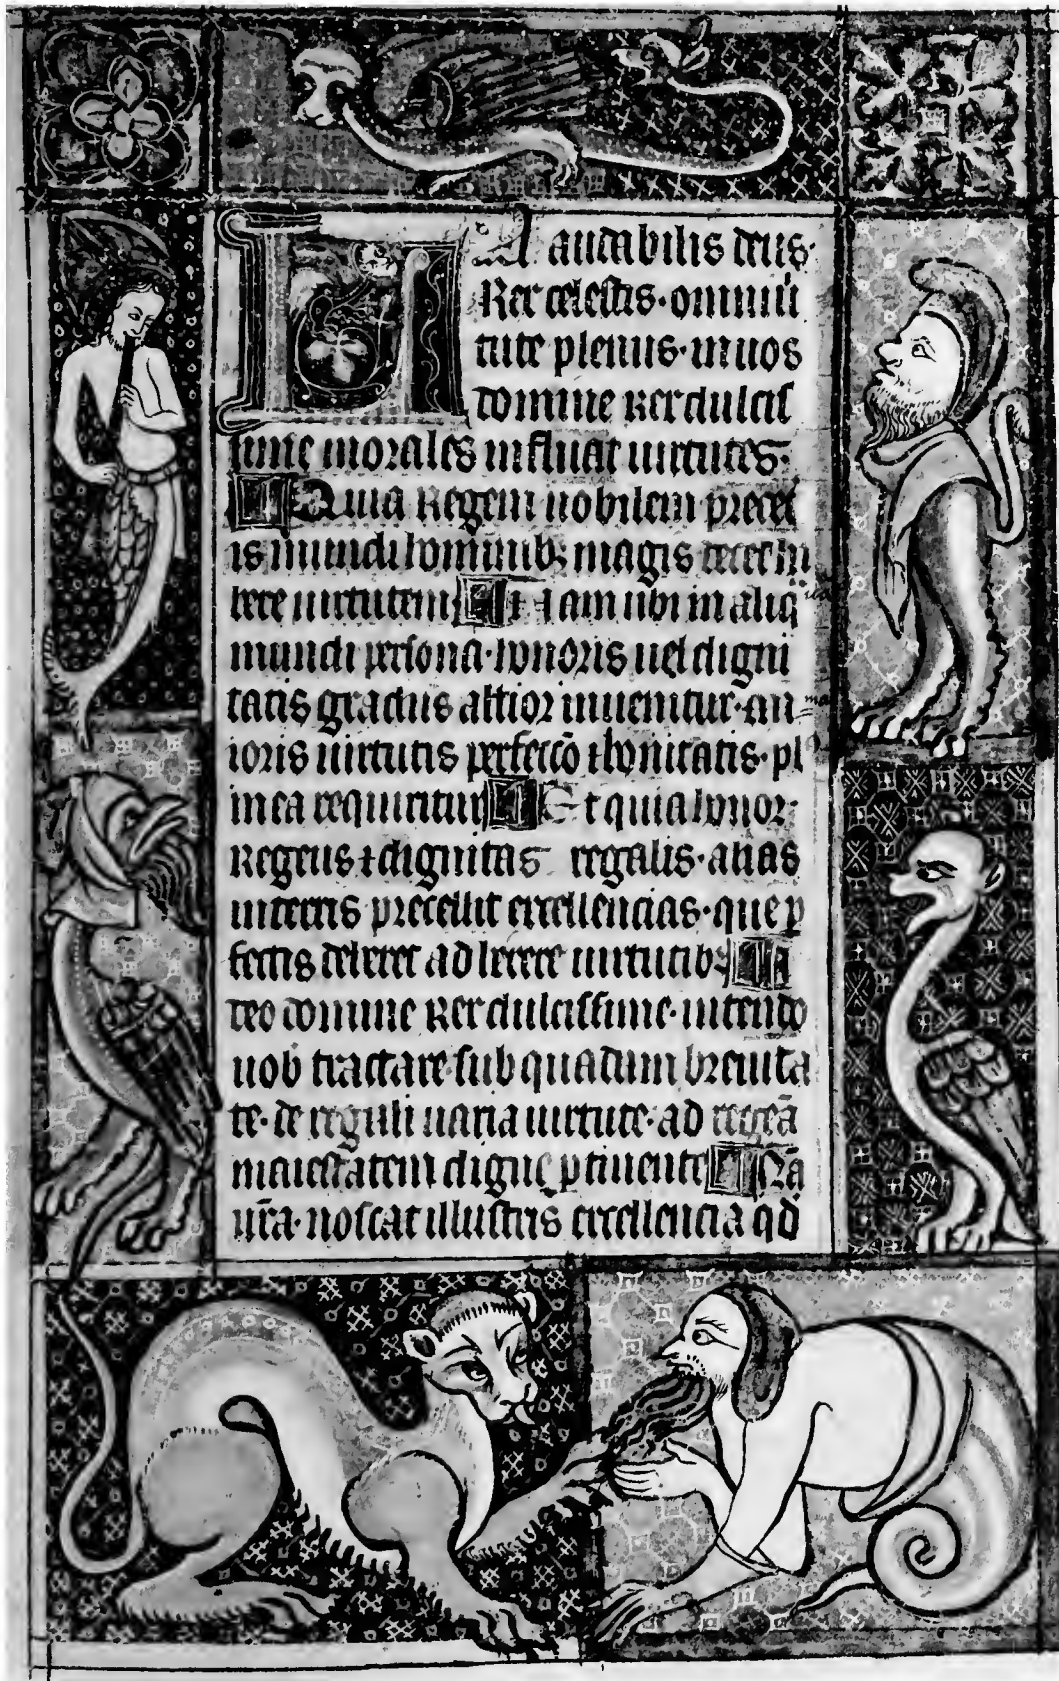 Laudabilis deus.
Rex celestis. omni uir
tute plenus. in uos
domine Rex dulcis
sime morales influat uirtutes.
Quia Regem nobilem preces
is mundi hominibꝫ magis decet ha
bere uirtutem Nam ubi in aliq̄
mundi persona. honoris uel digni
tatis gradus altior inuenitur. ma
ioris uirtutis perfectō ⁊ bonitatis. pl
in ea requiritur Et quia honor
Regeus ⁊ dignitas regalis. alias
mundi precellit excellencias. que ꝑ
fectis deberet adherere uirtutibꝫ
Ideo domine Rex dulcissime. intendo
uob̄ tractare sub quadam breuita
te. de reguli uaria uirtute. ad regeā
maiestatem digne ꝑtinente
ur̄a. noscat illustris excellencia qd̄